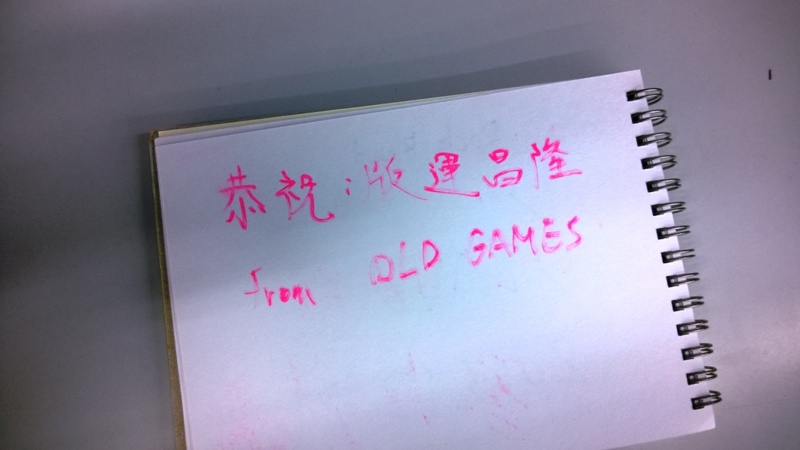 恭祝:版運昌隆
from OLD GAMES